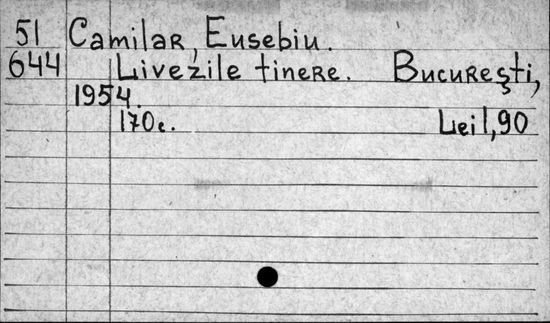 51 Camilar, Eusebiu.
644 Livezile tinere. București,
1954.
170c. Lei 1,90